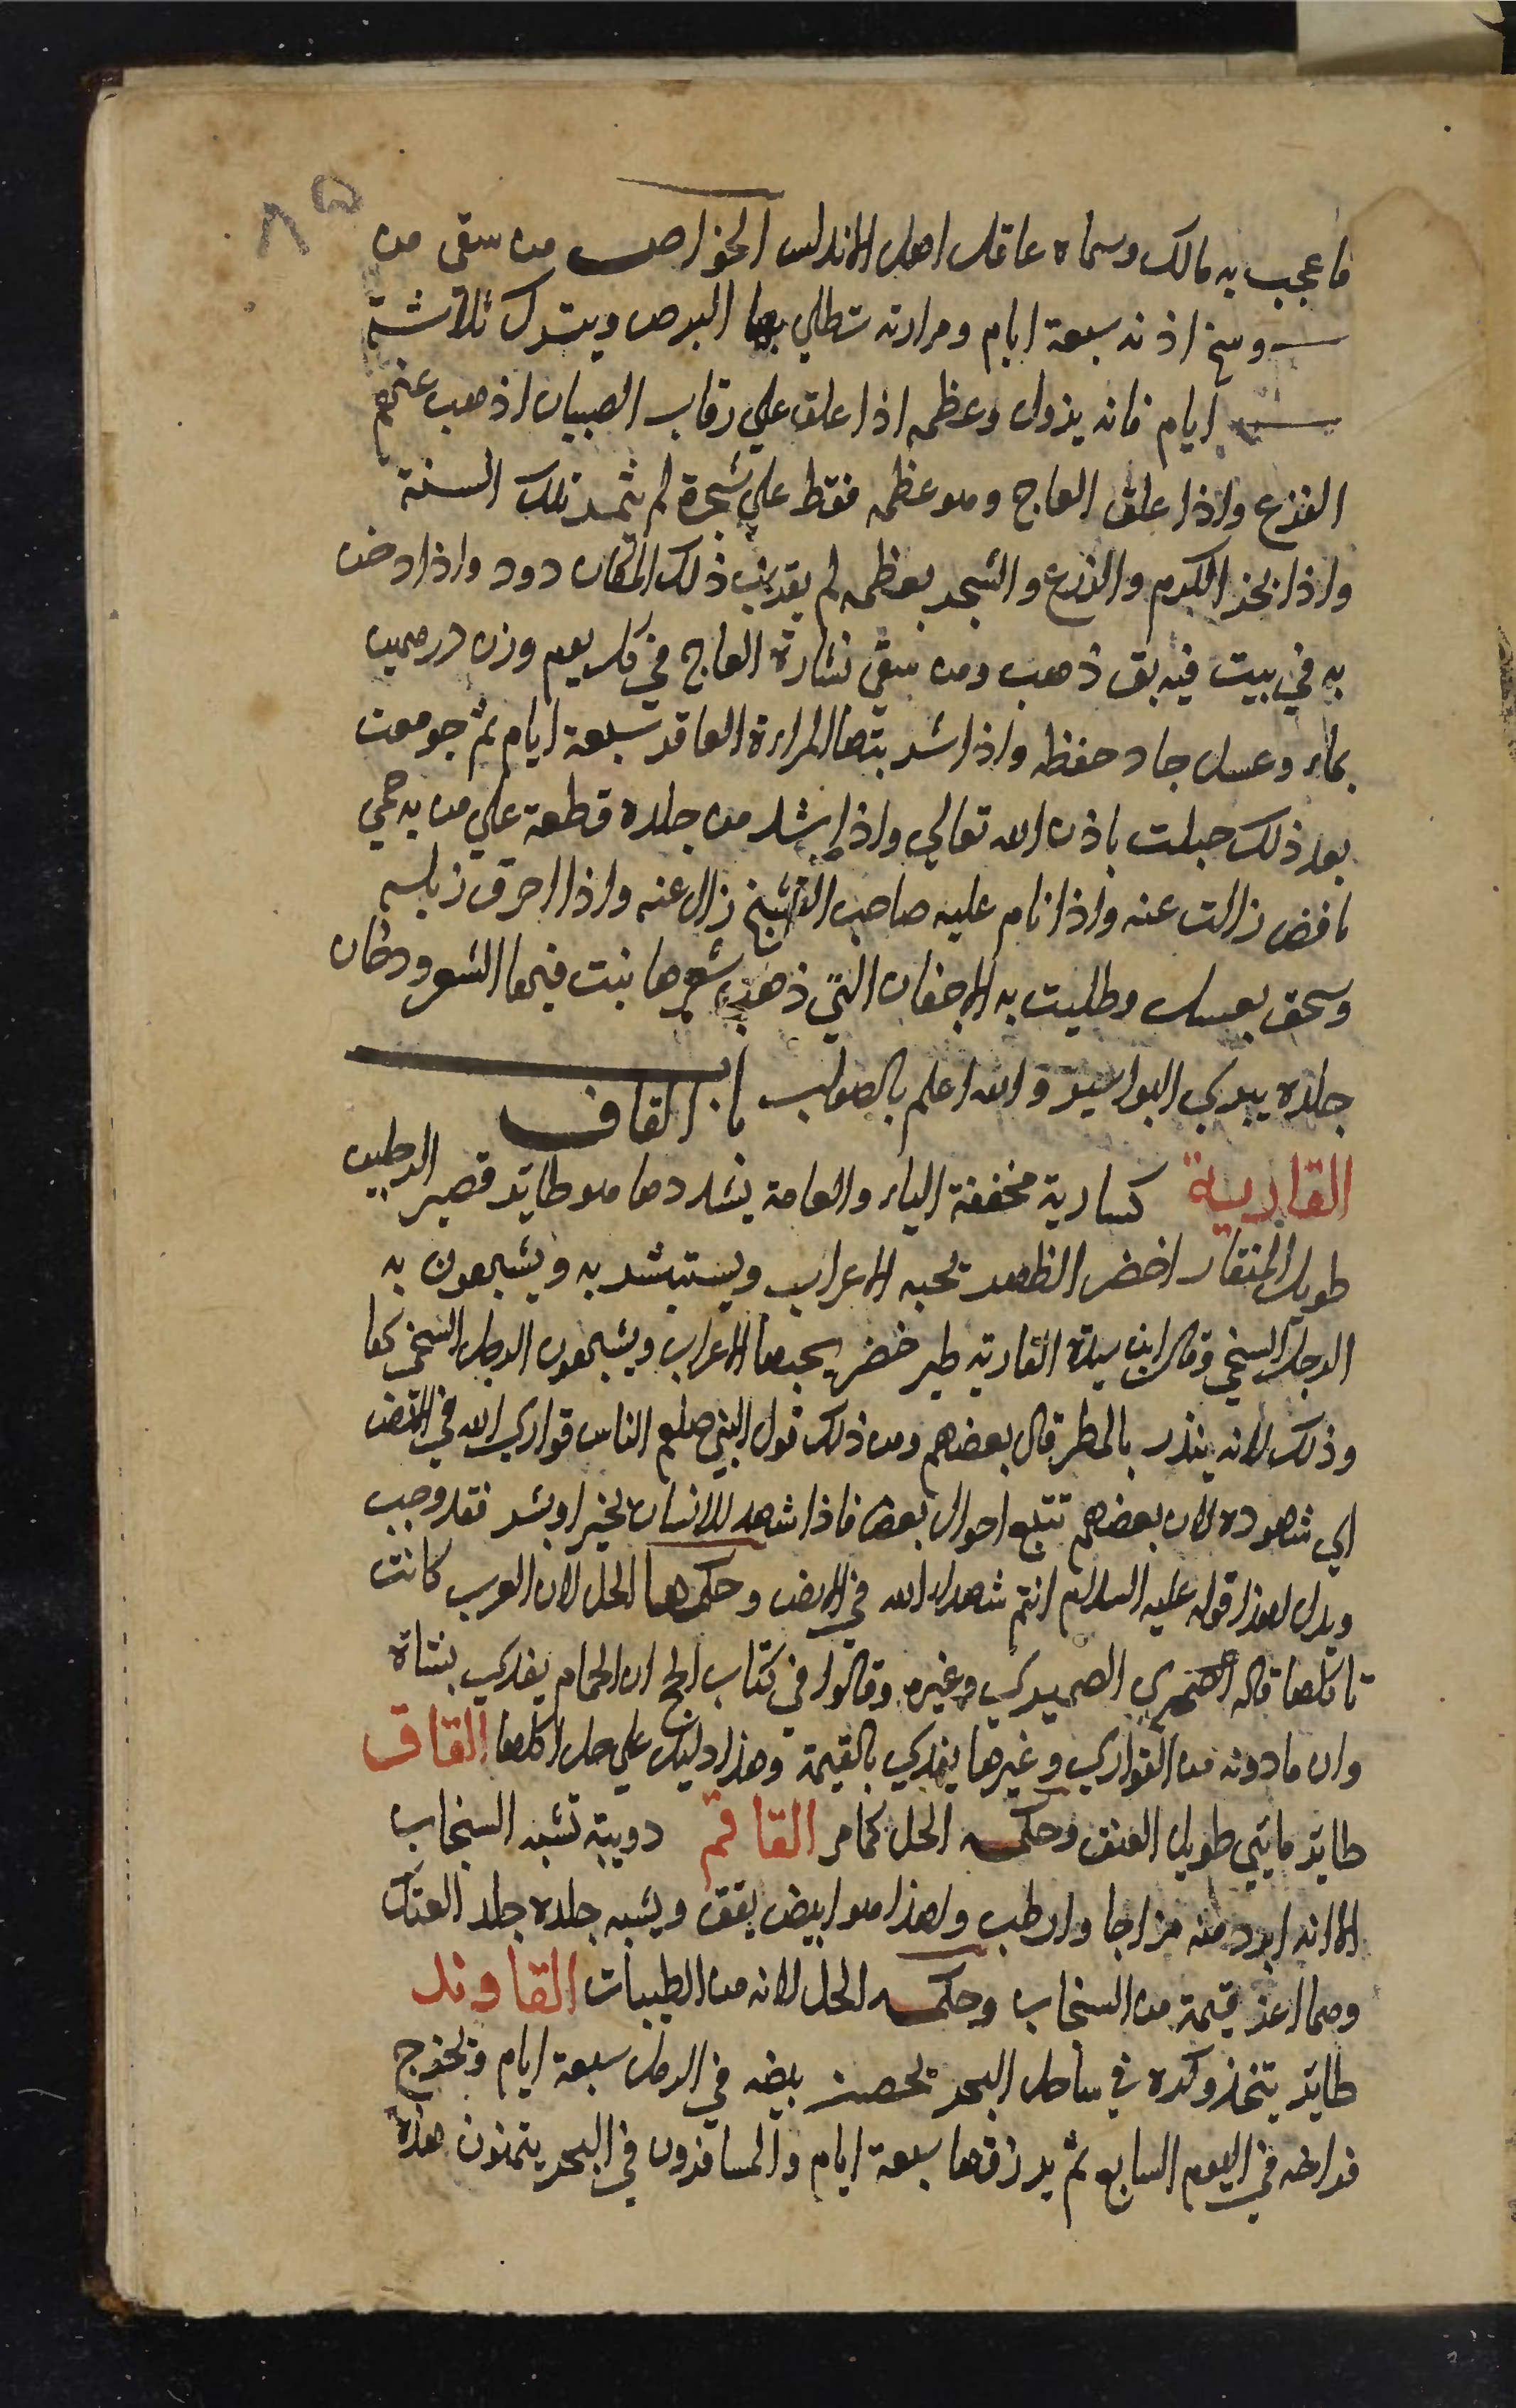 ٨٥
فاعجب به مالك وسماه عاقل اهل الاندلس الخواص من سقى من
وسخ اذنه سبعة ايام ومرارته تطلي بها البرص ويترك ثلاثة
ايام فانه يزول وعظمه اذا علق علي رقاب الصبيان اذهب عنهم
الفزع واذا علق العاج وهو عظمه فقط علي شجرة لم تثمر تلك السنة
واذا بخر الكرم والزرع والشجر بعظمه لم يقرب ذلك المكان دود واذا دخن
به في بيت فيه بق ذهب ومن سقي نشارة العاج في كل يوم وزن درهمين
بماء وعسل جاد حفظه واذا شربتها المراءة العاقر سبعة ايام ثم جومعت
بعد ذلك حبلت باذن الله تعالي واذا شد من جلده قطعة علي من به حمي
نافض زالت عنه واذا نام عليه صاحب التشنج زال عنه واذا احرق زبله
وسحق بعسل وطليت به الاجفان التي ذهب شعرها نبت فيها الشعر ودخان
جلده يبري البواسير والله اعلم بالصواب باب القاف
القارية كسارية مخففة الياء والعامة يشددها هو طاير قصير الرجلين
طويل المنقار اخضر الظهر تحبه الاعراب ويستبشر به ويشبهون به
الرجل السخي وقال ابن سيدة القارية طير خضر يحبها الاعراب ويشبهون الرجل السخي بها
وذلك لانه ينذر بالمطر قال بعضهم ومن ذلك قول النبي صلعم الناس قواري الله في الارض
اي شهوده لان بعضهم تتبع احوال بعض فاذا شهد للانسان بخير او بشر فقد وجب
ويدل لهذا قوله عليه السلام انتم شهداء الله في الارض وحكمها الحل لان العرب كانت
تاكلها قاله الصميري وغيره وقالوا في كتاب الحج ان الحمام يفدي بشاة
وان ما دونه من القواري وغيرها يفدي بالقيمة وهذا دليل علي حل اكلها القاق
طاير مايي طويل العنق وحكمه الحل كما مر القاقم دويبة تشبه السنجاب
الا انه ابرد منه مزاجا وارطب ولهذا هو ابيض يقق ويشبه جلده جلد الفنك
وهما اعز قيمة من السنجاب وحكمه الحل لانه من الطيبات القاوند
طاير يتخذ وكره في ساحل البحر يحضن بيضه في الرمل سبعة ايام وتخرج
فراخه في اليوم السابع ثم يرزقها سبعة ايام والمسافرون في البحر يتمنون هذه